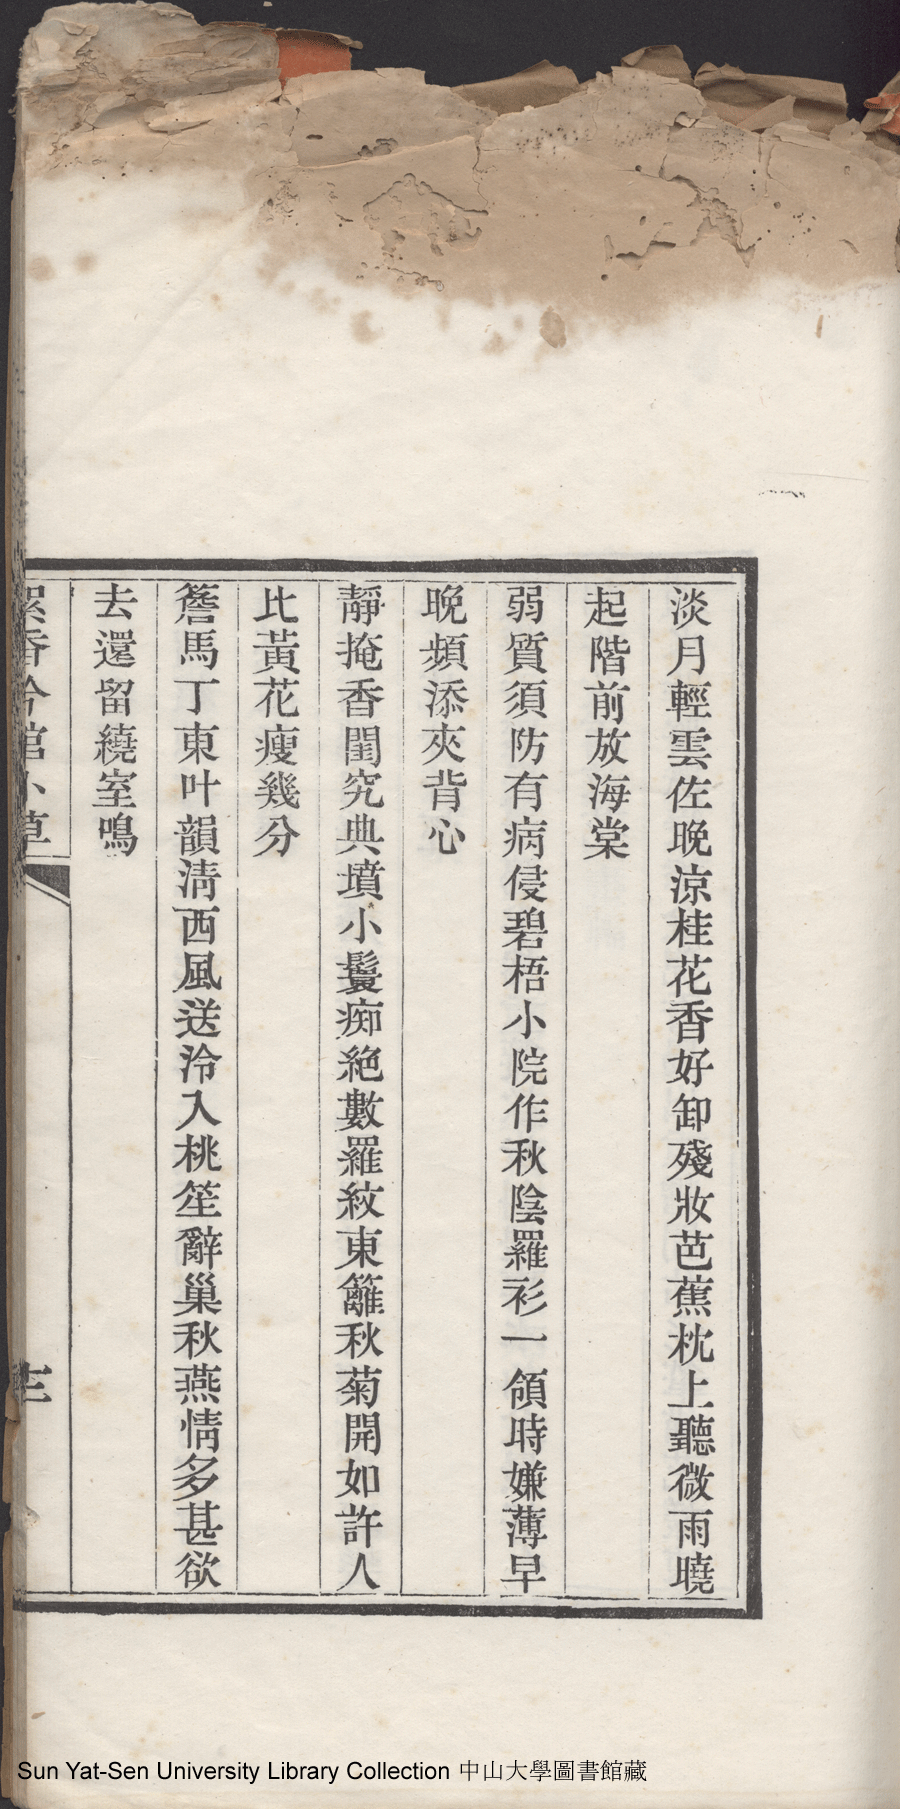 淡月輕雲佐晚涼桂花香好卸殘妝芭蕉枕上聽微雨曉
起階前放海棠
弱質須防有病侵碧梧小院作秋陰羅衫一領時嫌薄早
晚頻添夾背心
靜掩香閨究典墳小鬟痴絕數羅紋東籬秋菊開如許人
比黃花瘦幾分
簷馬丁東叶韻清西風送冷入桃笙辭巢秋燕情多甚欲
去還留繞室鳴
絮香吟館小草
Sun Yat-Sen University Library Collection 中山大學圖書館藏